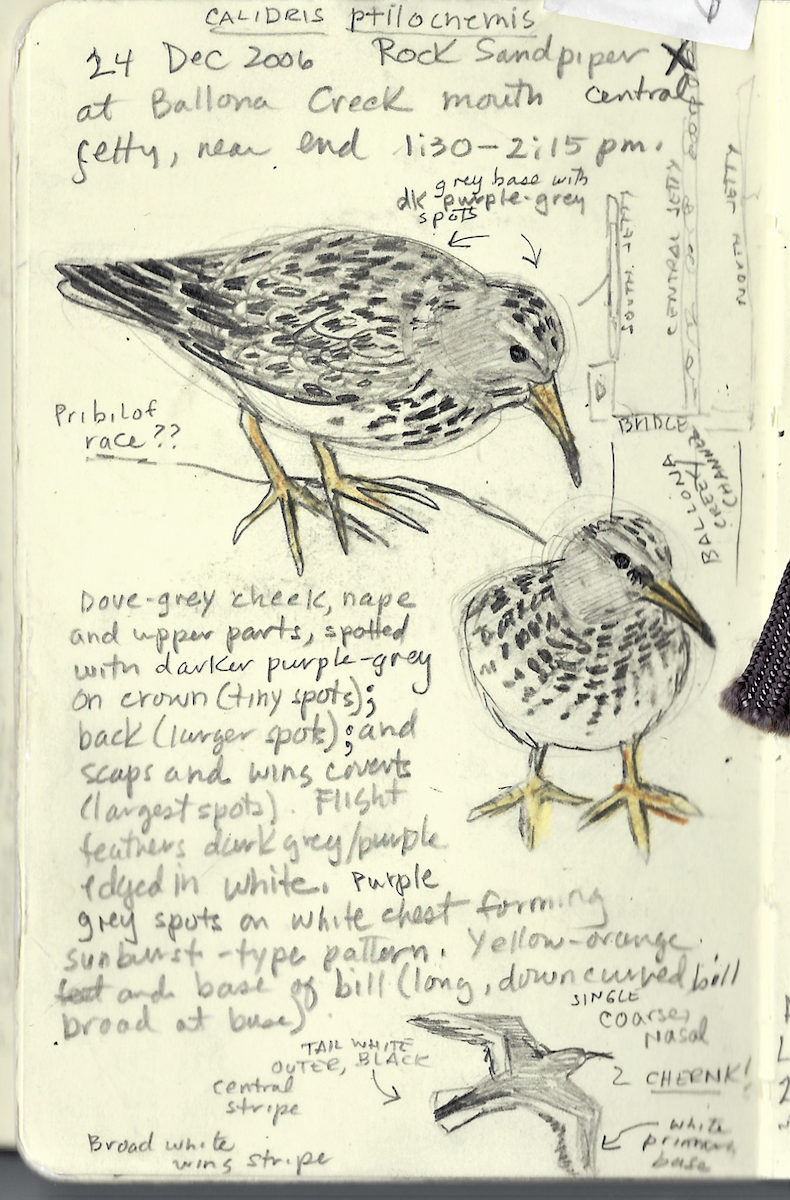 CALIDRIS ptilocnemis
24 Dec 2006 Rock Sandpiper X
at Ballona Creek mouth central
jetty, near end 1:30-2:15 pm.
grey base with
dk purple-grey
spots
NORTH JETTY
CENTRAL JETTY
SOUTH JETTY
BRIDGE
BALLONA
CREEK
CHANNEL
Pribilof
race??
Dove-grey cheek, nape
and upper parts, spotted
with darker purple-grey
on crown (tiny spots);
back (larger spots); and
scaps and wing coverts
(largest spots). Flight
feathers dark grey/purple
edged in white. Purple
grey spots on white chest forming
sunburst-type pattern. Yellow-orange
feet and base of bill (long, downcurved bill
broad at base)
SINGLE
coarse,
nasal
CHERNK!
TAIL WHITE
OUTER, BLACK
central
stripe
white
primary
base
Broad white
wing stripe